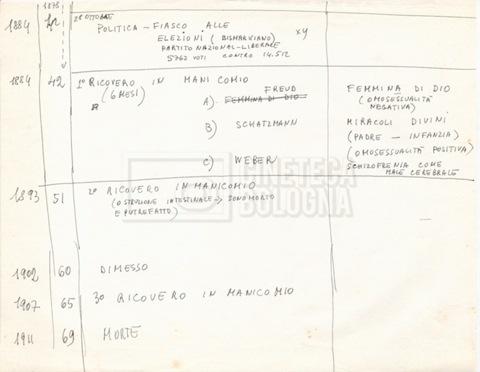 1878
1884 42 28 OTTOBRE
POLITICA – FIASCO ALLE
ELEZIONI (BISMARKIANO) XY
PARTITO NAZIONAL-LIBERALE
5762 VOTI CONTRO 14.512
1884 42 1° RICOVERO IN MANICOMIO
(6 MESI)
A) FEMMINA DI DIO FREUD
B) SCHATZMANN
C) WEBER
FEMMINA DI DIO
(OMOSESSUALITÀ
NEGATIVA)
MIRACOLI DIVINI
(PADRE – INFANZIA)
(OMOSESSUALITÀ POSITIVA)
SCHIZOFRENIA COME
MALE CEREBRALE
1893 51 2° RICOVERO IN MANICOMIO
(OSTRUZIONE INTESTINALE → SONO MORTO
E PUTREFATTO)
1902 60 DIMESSO
1907 65 3° RICOVERO IN MANICOMIO
1911 69 MORTE
CINETECA
BOLOGNA